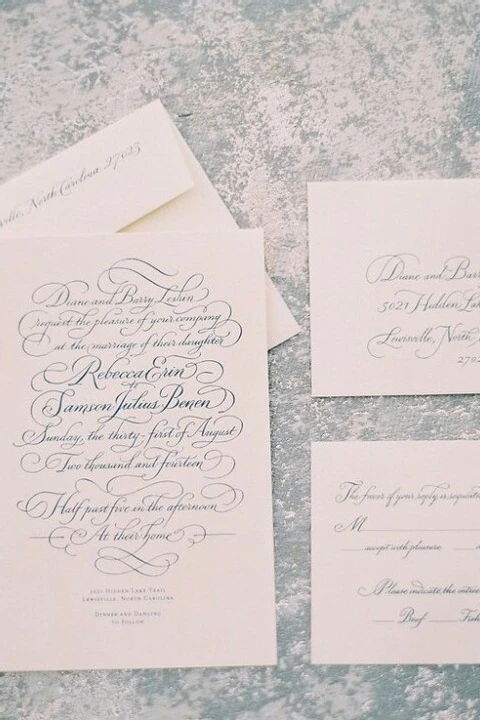 ville, North Carolina 27023
Diane and Barry Leshin
request the pleasure of your company
at the marriage of their daughter
Rebecca Erin
to
Samson Julius Benen
Sunday, the thirty-first of August
Two thousand and fourteen
Half past five in the afternoon
At their home
5021 Hidden Lake Trail
Lewisville, North Carolina
Dinner and Dancing
to Follow
Diane and Barr
5021 Hidden Lak
Lewisville, North
2702
The favor of your reply is requeste
M
accept with pleasure
Please indicate the entrée
Beef Fish